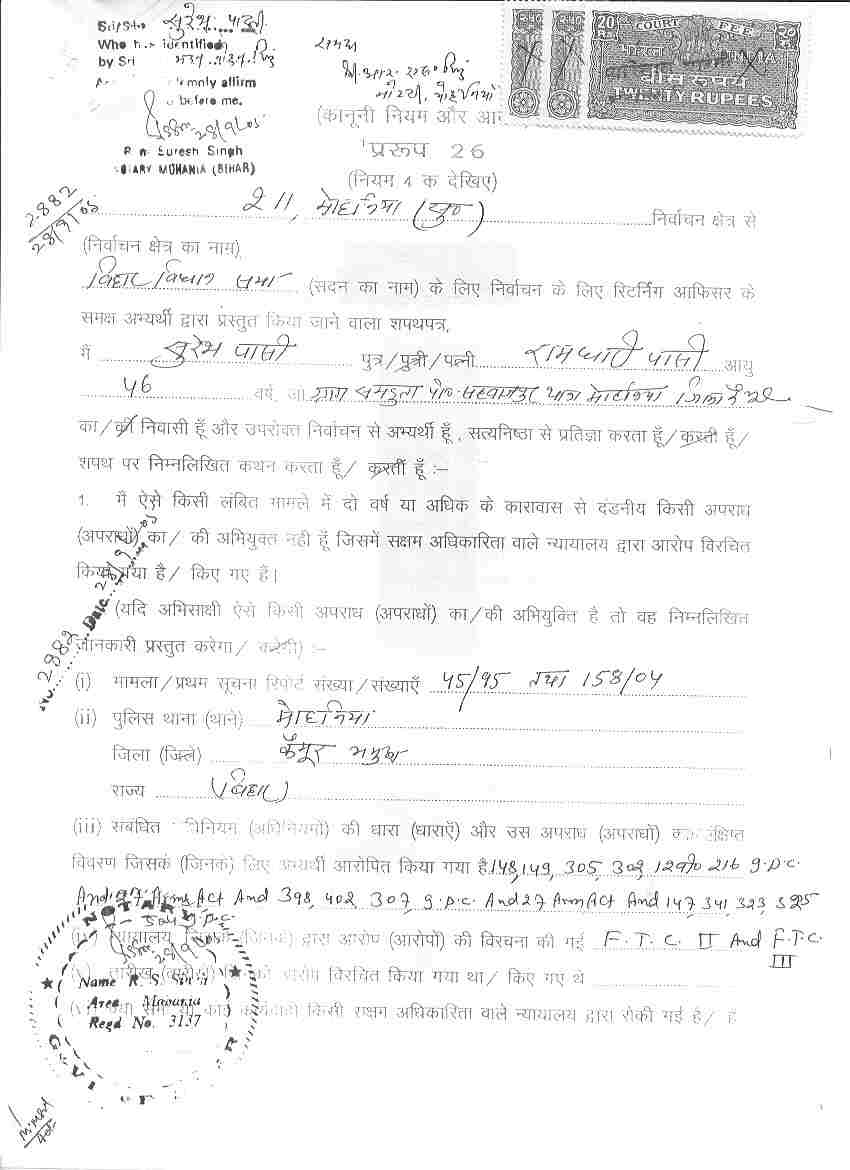 Sri/Smt सुरेश पासी
Who has identified
by Sri
And solemnly affirm
before me.
28/9/05
R. n. Suresh Singh
NOTARY MOHANIA (BIHAR)
समक्ष
20 Rs. COURT FEE २० रु.
भारत INDIA
बीस रूपये
TWENTY RUPEES
(कानूनी नियम और आ
प्ररूप 26
(नियम 4 क देखिए)
2882
28/9/05
211, मोहनिया (सु०) निर्वाचन क्षेत्र से
(निर्वाचन क्षेत्र का नाम)
बिहार विधान सभा (सदन का नाम) के लिए निर्वाचन के लिए रिटर्निंग आफिसर के
समक्ष अभ्यर्थी द्वारा प्रस्तुत किया जाने वाला शपथपत्र,
मैं सुरेश पासी पुत्र/पुत्री/पत्नी रामधारी पासी आयु
46 वर्ष, जो ग्राम पो० थाना मोहनिया जिला कैमूर
का/की निवासी हूँ और उपरोक्त निर्वाचन से अभ्यर्थी हूँ, सत्यनिष्ठा से प्रतिज्ञा करता हूँ/ करती हूँ/
शपथ पर निम्नलिखित कथन करता हूँ/ करती हूँ :–
1. मैं ऐसे किसी लंबित मामले में दो वर्ष या अधिक के कारावास से दंडनीय किसी अपराध
(अपराधों) का/ की अभियुक्त नही हूँ जिसमें सक्षम अधिकारिता वाले न्यायालय द्वारा आरोप विरचित
किया गया है/ किए गए हैं।
(यदि अभिसाक्षी ऐसे किसी अपराध (अपराधों) का/की अभियुक्ति है तो वह निम्नलिखित
जानकारी प्रस्तुत करेगा/ करेगी) :–
No. 2882 Date 28/9/05
(i) मामला/प्रथम सूचना रिपोर्ट संख्या/संख्याएँ 45/95 तथा 158/04
(ii) पुलिस थाना (थाने) मोहनियां
जिला (जिले) कैमूर भभुआ
राज्य (बिहार)
(iii) संबंधित अधिनियम (अधिनियमों) की धारा (धाराएँ) और उस अपराध (अपराधों) का संक्षिप्त
विवरण जिसके (जिनके) लिए अभ्यर्थी आरोपित किया गया है 148, 149, 305, 302, 120B 216 I.P.C.
And 27 Arms Act And 398, 402, 307, I.P.C. And 27 Arm Act And 147, 341, 323, 325
504 I.P.C.
(iv) न्यायालय जिसके (जिनके) द्वारा आरोप (आरोपों) की विरचना की गई F.T.C. II And F.T.C. III
(v) तारीख (तारीखें) जिसको आरोप विरचित किया गया था/ किए गए थे
(vi) क्या सभी या कोई कार्यवाही किसी सक्षम अधिकारिता वाले न्यायालय द्वारा रोकी गई है/ हैं
NOTARY
28/9/05
Name R. S. Singh
Area Mohania
Regd No. 3137